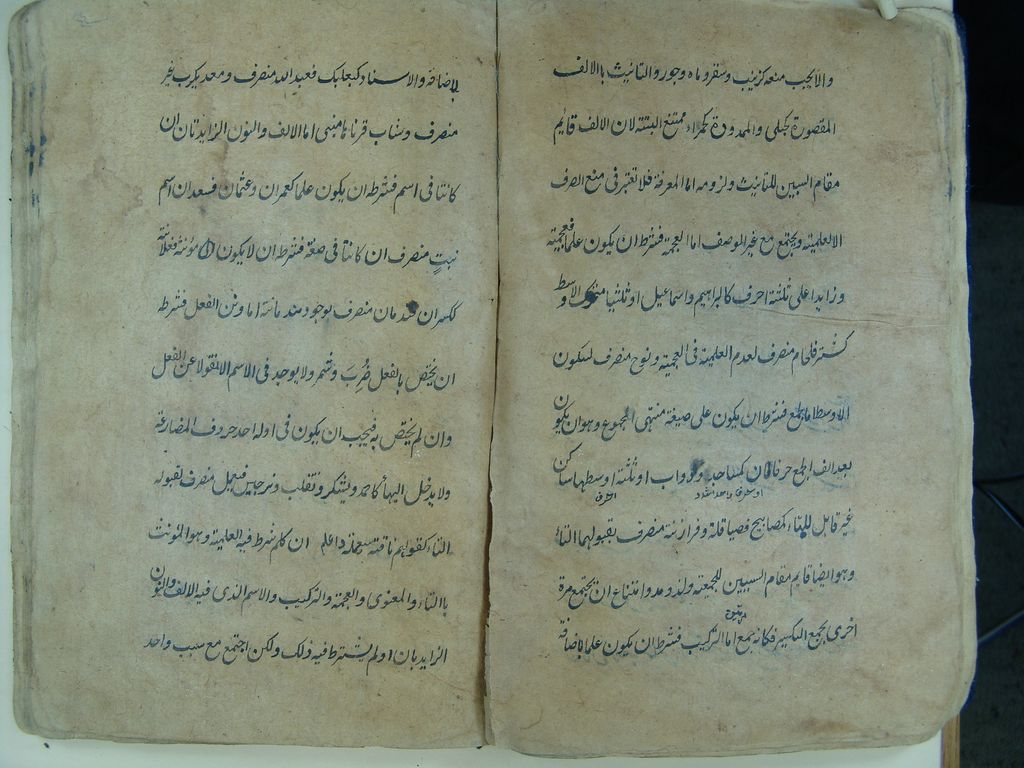 والا يجب منعه كزينب وسقر وماه وجور والتانيث بالالف
المقصورة كحبلى والممدودة كحمراء ممتنع البتة لان الالف قايم
مقام السببين للتانيث ولزومه اما المعرفة فلا تعتبر فى منع الصرف
الا العلمية ويجتمع مع غير الوصف اما العجمة فشرط ان يكون علما فى العجمية
وزايدا على ثلثة احرف كابراهيم واسماعيل او ثلثيا متحرك الاوسط
كشتر فلجام منصرف لعدم العلمية فى العجمية ونوح منصرف لسكون
الاوسط اما الجمع فشرط ان يكون على صيغة منتهى الجموع وهو ان يكون
بعد الف الجمع حرفان كمساجد ودواب او ثلثة اوسطها ساكن
او حرف واحد مشدد احرف
غير قابل للتاء كمصابيح فصياقلة وفرازنة منصرف بقبولهما التاء
وهو ايضا قايم مقام السببين للجمعية ولزومه وامتناع ان يجتمع مرة
اخرى بجمع التكسير فكانه جمع مرتين اما التركيب فشرط ان يكون علما بلا اضافة
بلا اضافة والاسناد كبعلبك فعبد الله منصرف ومعديكرب غير
منصرف وشاب قرناها مبنى اما الالف والنون الزايدتان ان
كانتا فى اسم فشرط ان يكون علما كعمران وعثمان فسعدان اسم
نبت منصرف ان كانتا فى صفة فشرط ان لا يكون مؤنثه فعلانة
كسكران فندمان منصرف لوجود ندمانة اما وزن الفعل فشرطه
ان يختص بالفعل كضرب وشمر ولا يوجد فى الاسم الا منقولا عن الفعل
وان لم يختص به فيجب ان يكون فى اوله احد حروف المضارعة
ولا يدخل الهاء كاحمد ويشكر وتغلب ونرجس فيعمل منصرف لقبوله
التاء كقولهم ناقة يعملة واعلم ان كلم شرط فيه العلمية وهو المؤنث
بالتاء والمعنوى والعجمة والتركيب والاسم الذى فيه الالف والنون
الزايدتان او لم يشترط فيه ذلك ولكن اجتمع مع سبب واحد